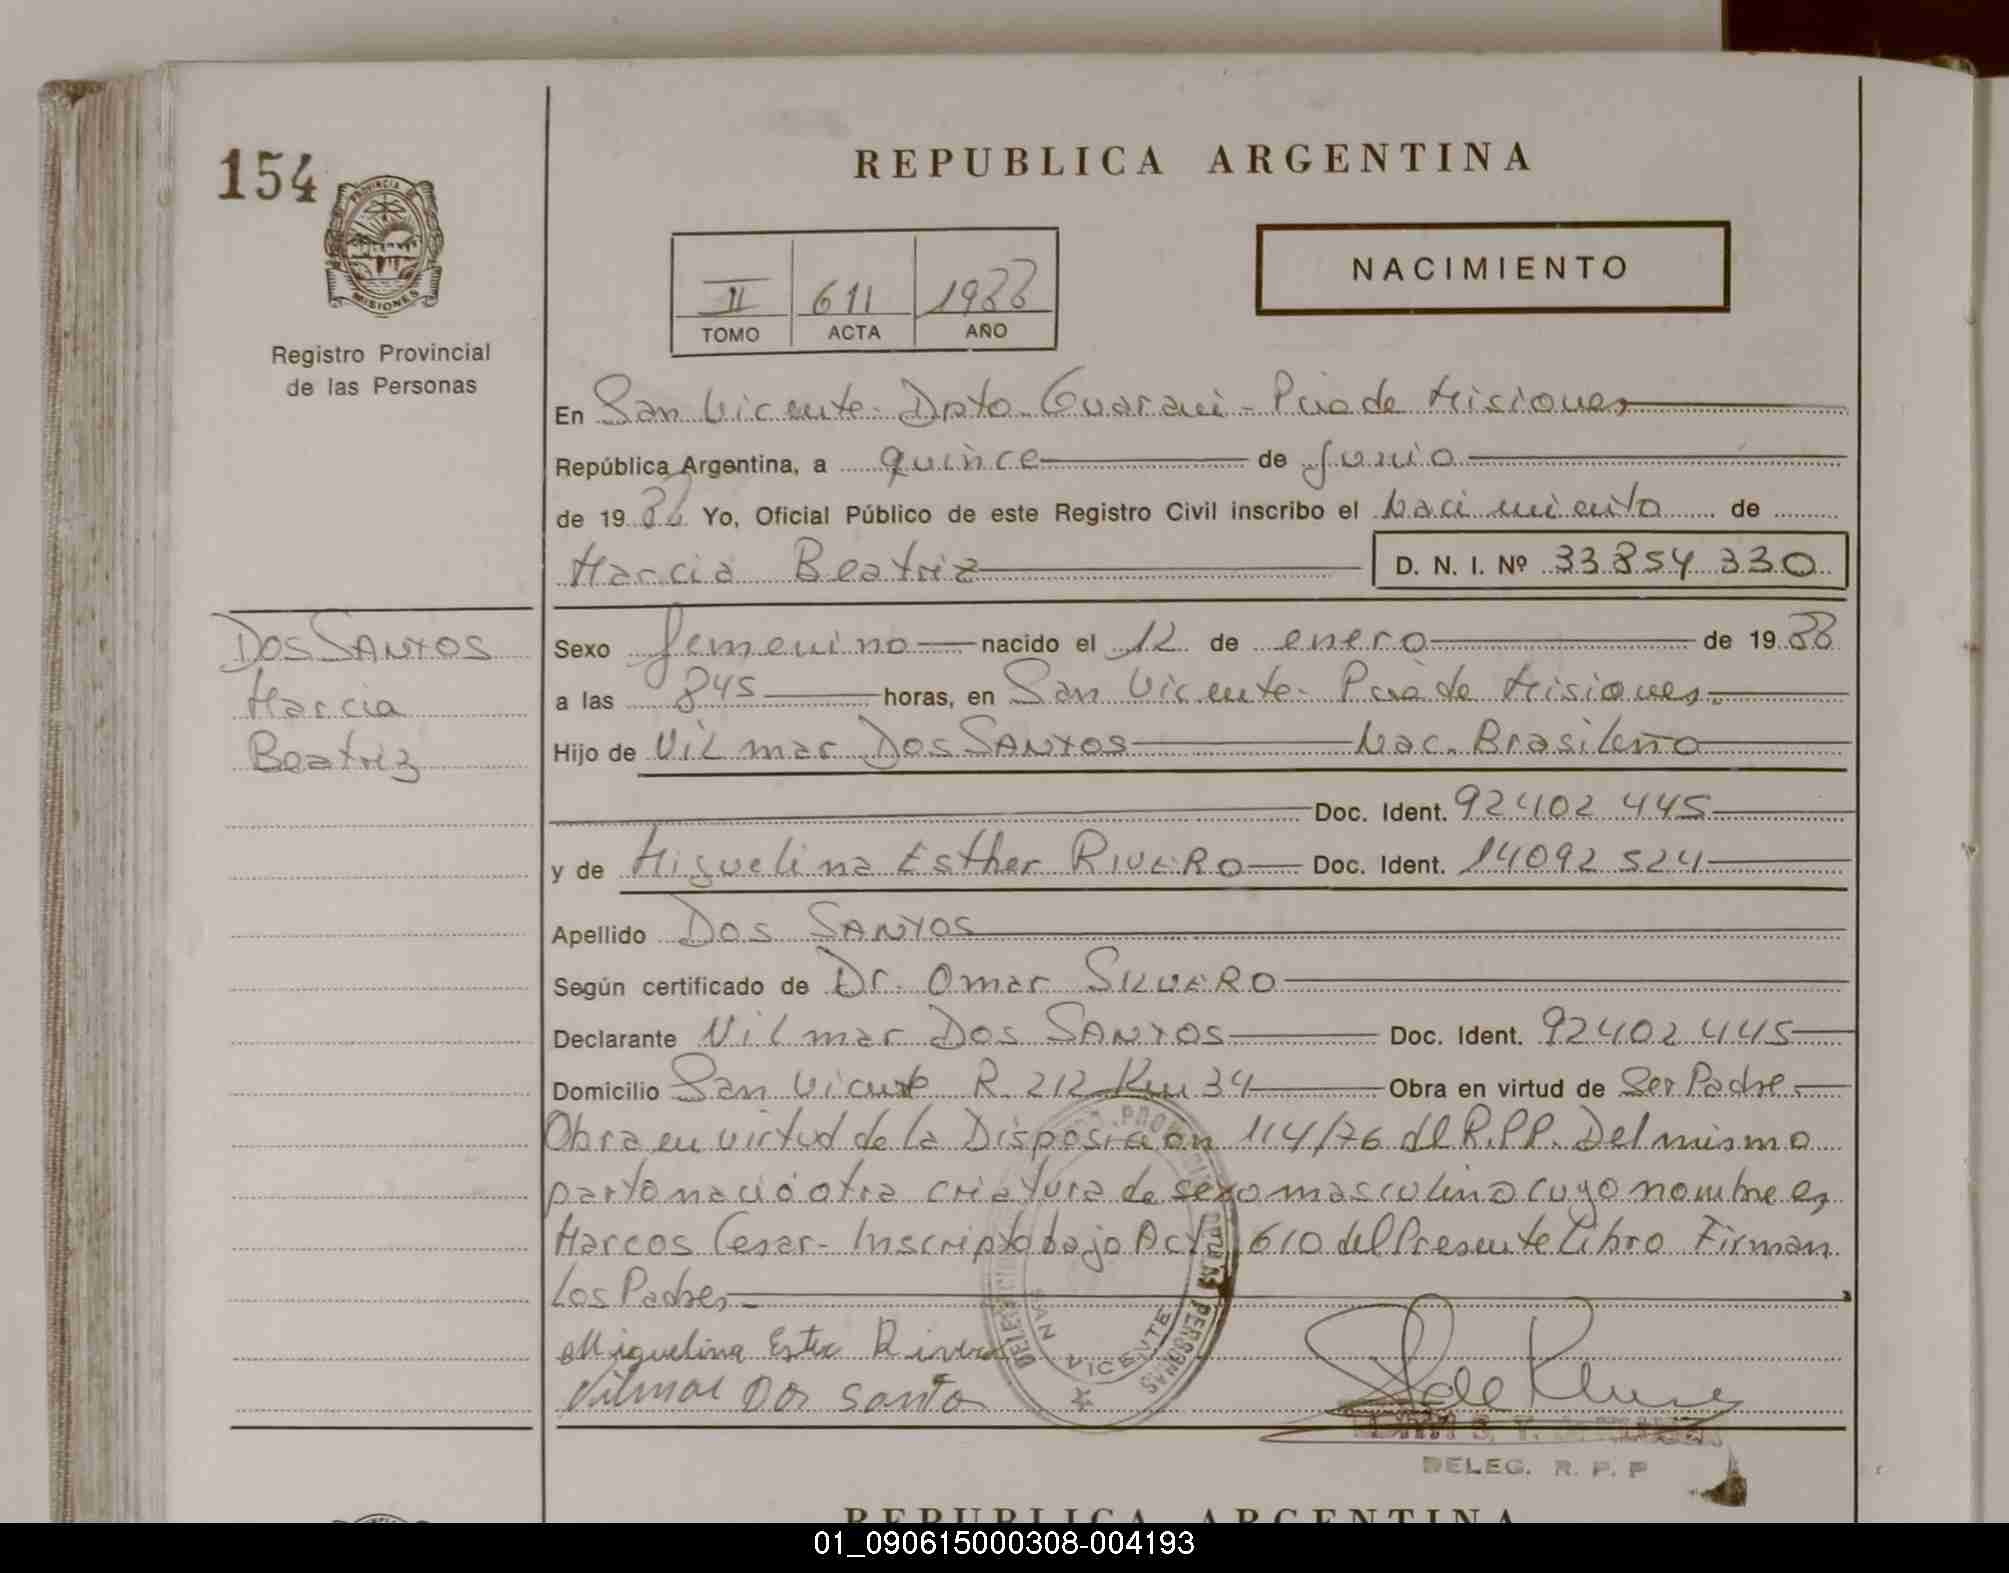 154
PROVINCIA DE
MISIONES
Registro Provincial
de las Personas
REPUBLICA ARGENTINA
II 611 1988
TOMO ACTA AÑO
NACIMIENTO
En San Vicente - Dpto Guarani - Pcia de Misiones
República Argentina, a quince de Junio
de 1988 Yo, Oficial Público de este Registro Civil inscribo el Nacimiento de
Marcia Beatriz D. N. I. Nº 33854330
DOS SANTOS
Marcia
Beatriz
Sexo femenino nacido el 12 de enero de 1988
a las 845 horas, en San Vicente - Pcia de Misiones.
Hijo de Vilmar DOS SANTOS Nac. Brasileño
Doc. Ident. 92402445
y de Miguelina Esther RIVERO Doc. Ident. 14092524
Apellido DOS SANTOS
Según certificado de Dr. Omar SILVERO
Declarante Vilmar DOS SANTOS Doc. Ident. 92402445
Domicilio San Vicente R. 212 Km 34 Obra en virtud de Ser Padre.
Obra en virtud de la Disposicion 114/76 del R.P.P. Del mismo
parto nació otra criatura de sexo masculino cuyo nombre es
Marcos Cesar - Inscripto bajo Acta 610 del Presente Libro Firman
Los Padres -
Miguelina Ester Rivero
Vilmar Dos Santo
SAN VICENTE
DE LAS PERSONAS
DELEG. R. P. P
REPUBLICA ARGENTINA
01_090615000308-004193